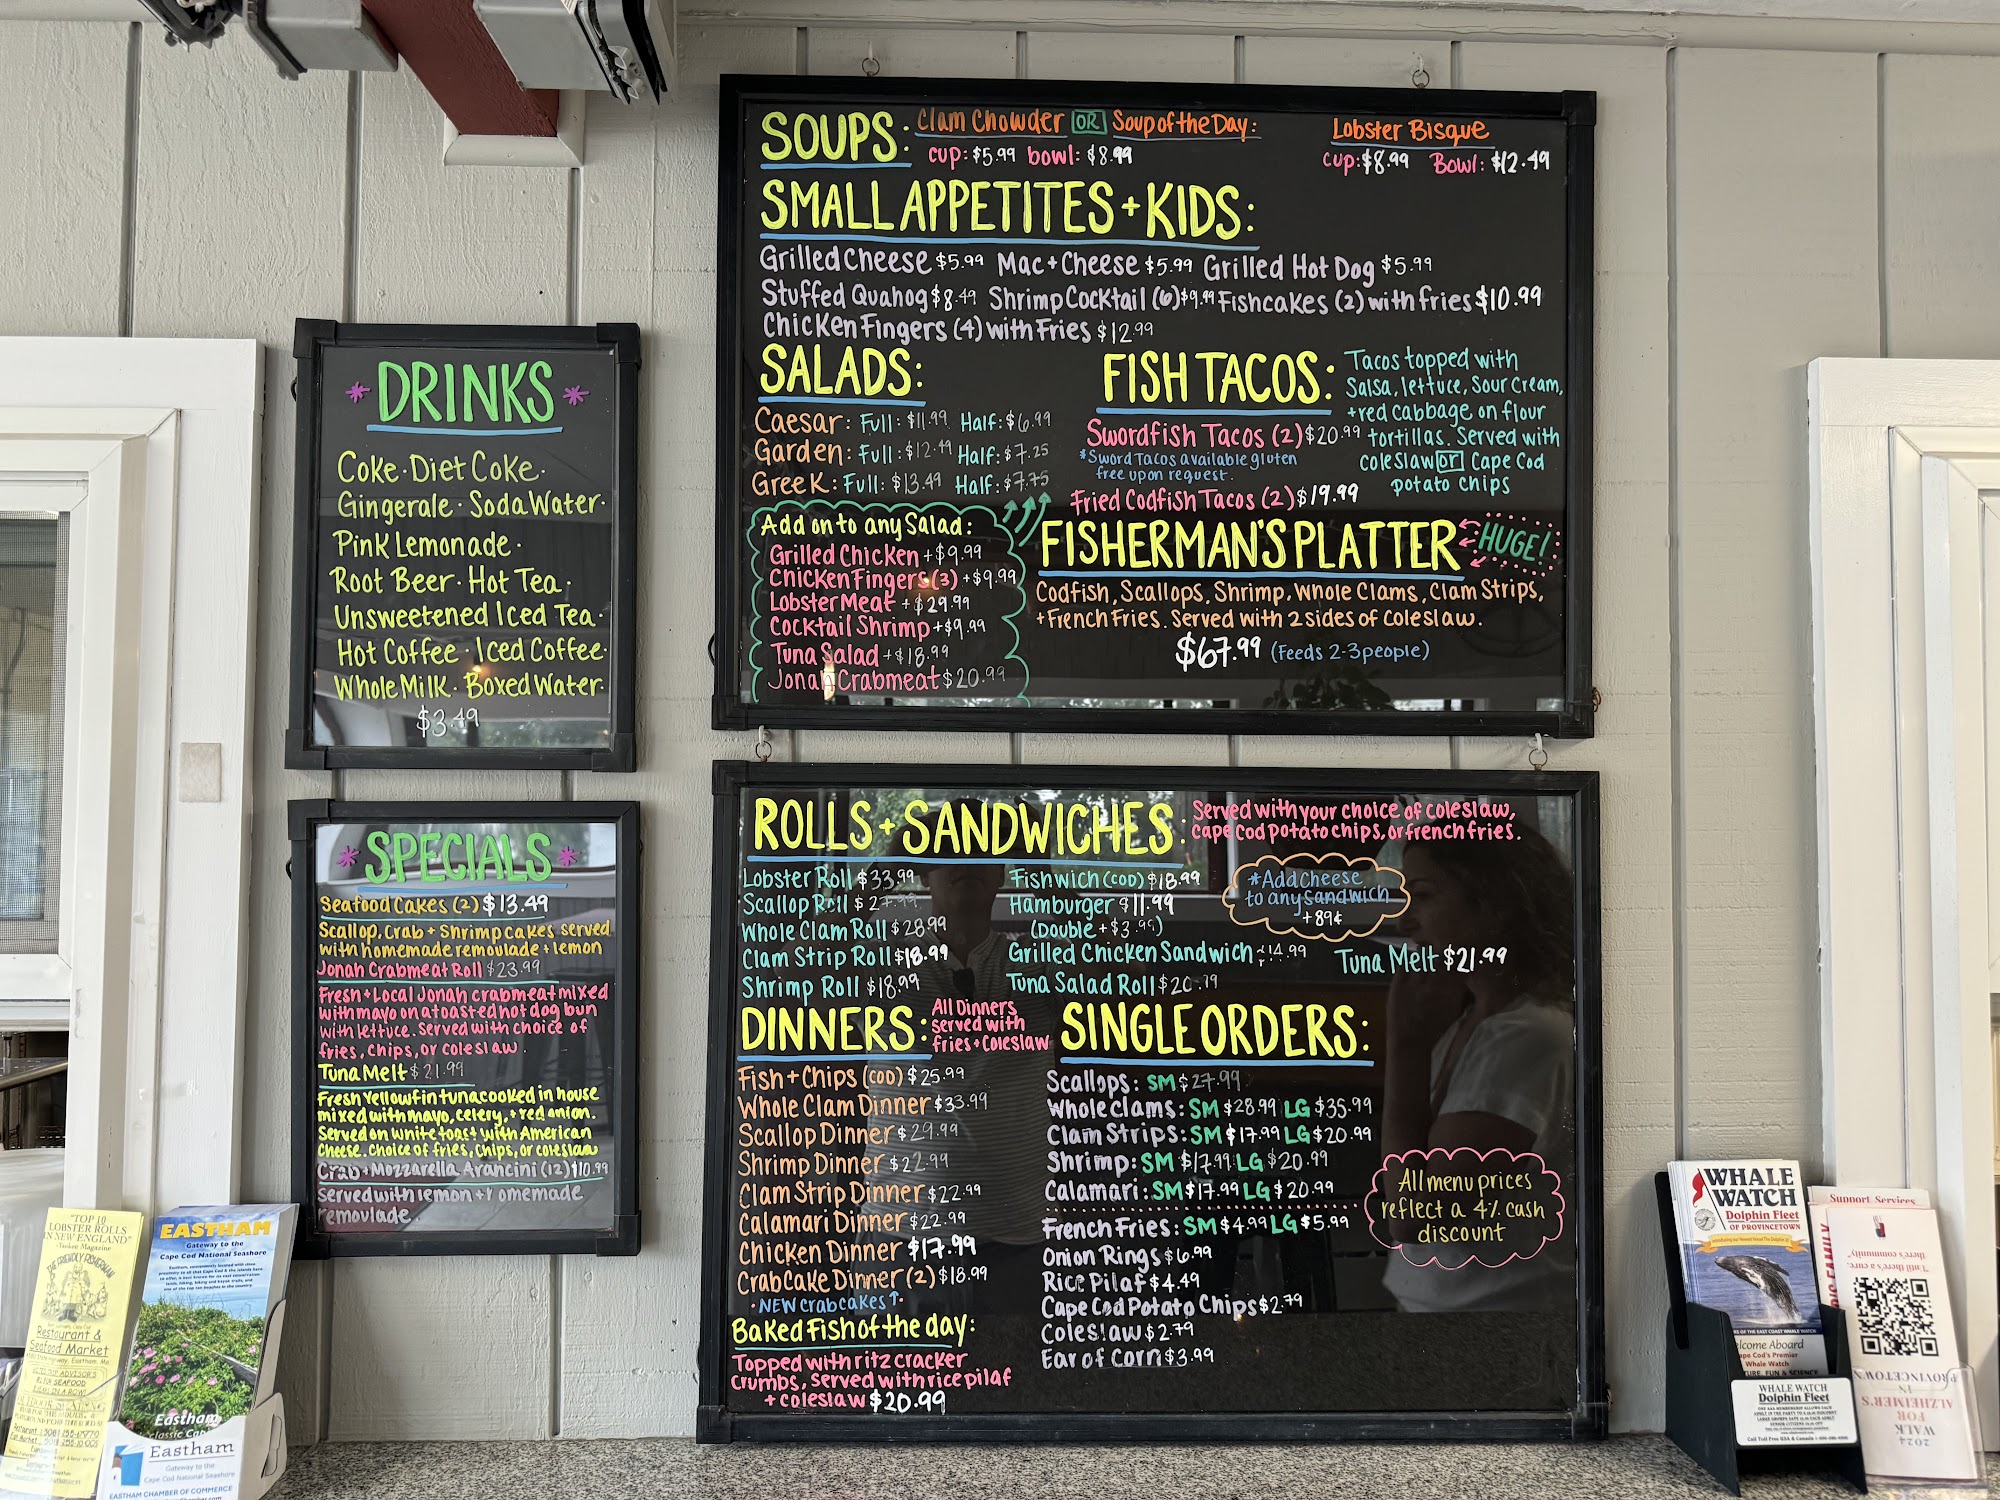 DRINKS
Coke · Diet Coke ·
Gingerale · Soda Water ·
Pink Lemonade ·
Root Beer · Hot Tea ·
Unsweetened Iced Tea ·
Hot Coffee · Iced Coffee ·
Whole Milk · Boxed Water ·
$3.49
SPECIALS
Seafood Cakes (2) $13.49
Scallop, Crab + Shrimp cakes served
with homemade remoulade + lemon
Jonah Crabmeat Roll $23.99
Fresh + Local Jonah crabmeat mixed
with mayo on a toasted hot dog bun
with lettuce. Served with choice of
fries, chips, or coleslaw.
Tuna Melt $21.99
Fresh Yellowfin tuna cooked in house
mixed with mayo, celery, + red onion.
Served on white toast with American
Cheese. Choice of fries, chips, or coleslaw
Crab + Mozzarella Arancini (12) $10.99
Served with lemon +
remoulade.
SOUPS: Clam Chowder OR Soup of the Day: Lobster Bisque
cup: $5.99 bowl: $8.99 cup: $8.99 Bowl: $12.49
SMALL APPETITES + KIDS:
Grilled Cheese $5.99 Mac + Cheese $5.99 Grilled Hot Dog $5.99
Stuffed Quahog $8.49 Shrimp Cocktail (6) $9.99 Fishcakes (2) with fries $10.99
Chicken Fingers (4) with Fries $12.99
SALADS:
Caesar: Full: $11.99 Half: $6.99
Garden: Full: $12.49 Half: $7.25
Greek: Full: $13.49 Half: $7.75
Add on to any Salad:
Grilled Chicken +$9.99
Chicken Fingers (3) +$9.99
Lobster Meat +$29.99
Cocktail Shrimp +$9.99
Tuna Salad +$18.99
Jonah Crabmeat $20.99
FISH TACOS:
Tacos topped with
Salsa, lettuce, Sour Cream,
+ red cabbage on flour
tortillas. Served with
coleslaw or Cape Cod
potato chips
Swordfish Tacos (2) $20.99
*Sword Tacos available gluten
free upon request.
Fried Codfish Tacos (2) $19.99
FISHERMAN'S PLATTER HUGE!
Codfish, Scallops, Shrimp, Whole Clams, Clam Strips,
+ French Fries. Served with 2 sides of coleslaw.
$67.99 (Feeds 2-3 people)
ROLLS + SANDWICHES: Served with your choice of coleslaw,
cape cod potato chips, or french fries.
Lobster Roll $33.99
Scallop Roll $27.99
Whole Clam Roll $28.99
Clam Strip Roll $18.99
Shrimp Roll $18.99
Fishwich (COD) $18.99
Hamburger $11.99
(Double +$3.99)
Grilled Chicken Sandwich $14.99
Tuna Salad Roll
*Add Cheese
to any Sandwich
+89¢
Tuna Melt $21.99
DINNERS:
All Dinners
served with
fries + Coleslaw
Fish + Chips (COD) $25.99
Whole Clam Dinner $33.99
Scallop Dinner $29.99
Shrimp Dinner $22.99
Clam Strip Dinner $22.99
Calamari Dinner $22.99
Chicken Dinner $17.99
Crab Cake Dinner (2) $18.99
· NEW crab cakes ↑ ·
Baked Fish of the day:
Topped with ritz cracker
crumbs, served with rice pilaf
+ coleslaw $20.99
SINGLE ORDERS:
Scallops: SM $27.99
Whole clams: SM $28.99 LG $35.99
Clam Strips: SM $17.99 LG $20.99
Shrimp: SM $17.99 LG $20.99
Calamari: SM $17.99 LG $20.99
French Fries: SM $4.99 LG $5.99
Onion Rings $6.99
Rice Pilaf $4.49
Cape Cod Potato Chips $2.79
Coleslaw $2.79
Ear of Corn $3.99
All menu prices
reflect a 4% cash
discount
"TOP 10
LOBSTER ROLLS
IN NEW ENGLAND"
Restaurant &
Seafood Market
EASTHAM
Gateway to the
Cape Cod National Seashore
Eastham
Eastham
Gateway to the
Cape Cod National Seashore
EASTHAM CHAMBER OF COMMERCE
WHALE
WATCH
Dolphin Fleet
OF PROVINCETOWN
Cape's Premier
Whale Watch
WHALE WATCH
Dolphin Fleet
Support Services
"Until there's a cure,
there's community."
2024
WALK
FOR
ALZHEIMER'S
IN
PROVINCETOWN